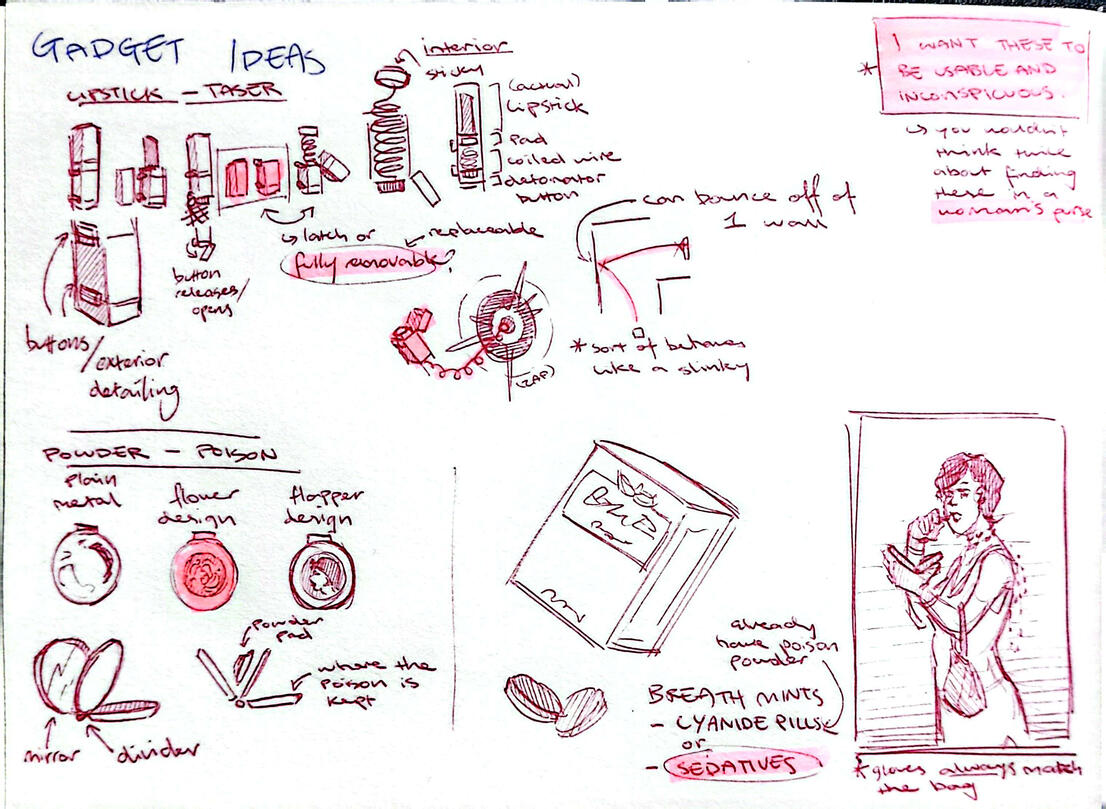 GADGET IDEAS
LIPSTICK - TASER
interior
sticky
(actual)
lipstick
pad
coiled wire
detonator
button
* I WANT THESE TO
BE USABLE AND
INCONSPICUOUS.
↳ you wouldn't
think twice
about finding
these in a
woman's purse
button
releases/
opens
↳ latch or
fully removable?
replaceable
buttons/exterior
detailing
can bounce off of
1 wall
* sort of behaves
like a slinky
(ZAP)
POWDER - POISON
plain
metal
flower
design
flapper
design
powder
pad
where the
poison is
kept
mirror
divider
already
have poison
powder
BREATH MINTS
- CYANIDE PILLS
or
- SEDATIVES
* gloves always match
the bag